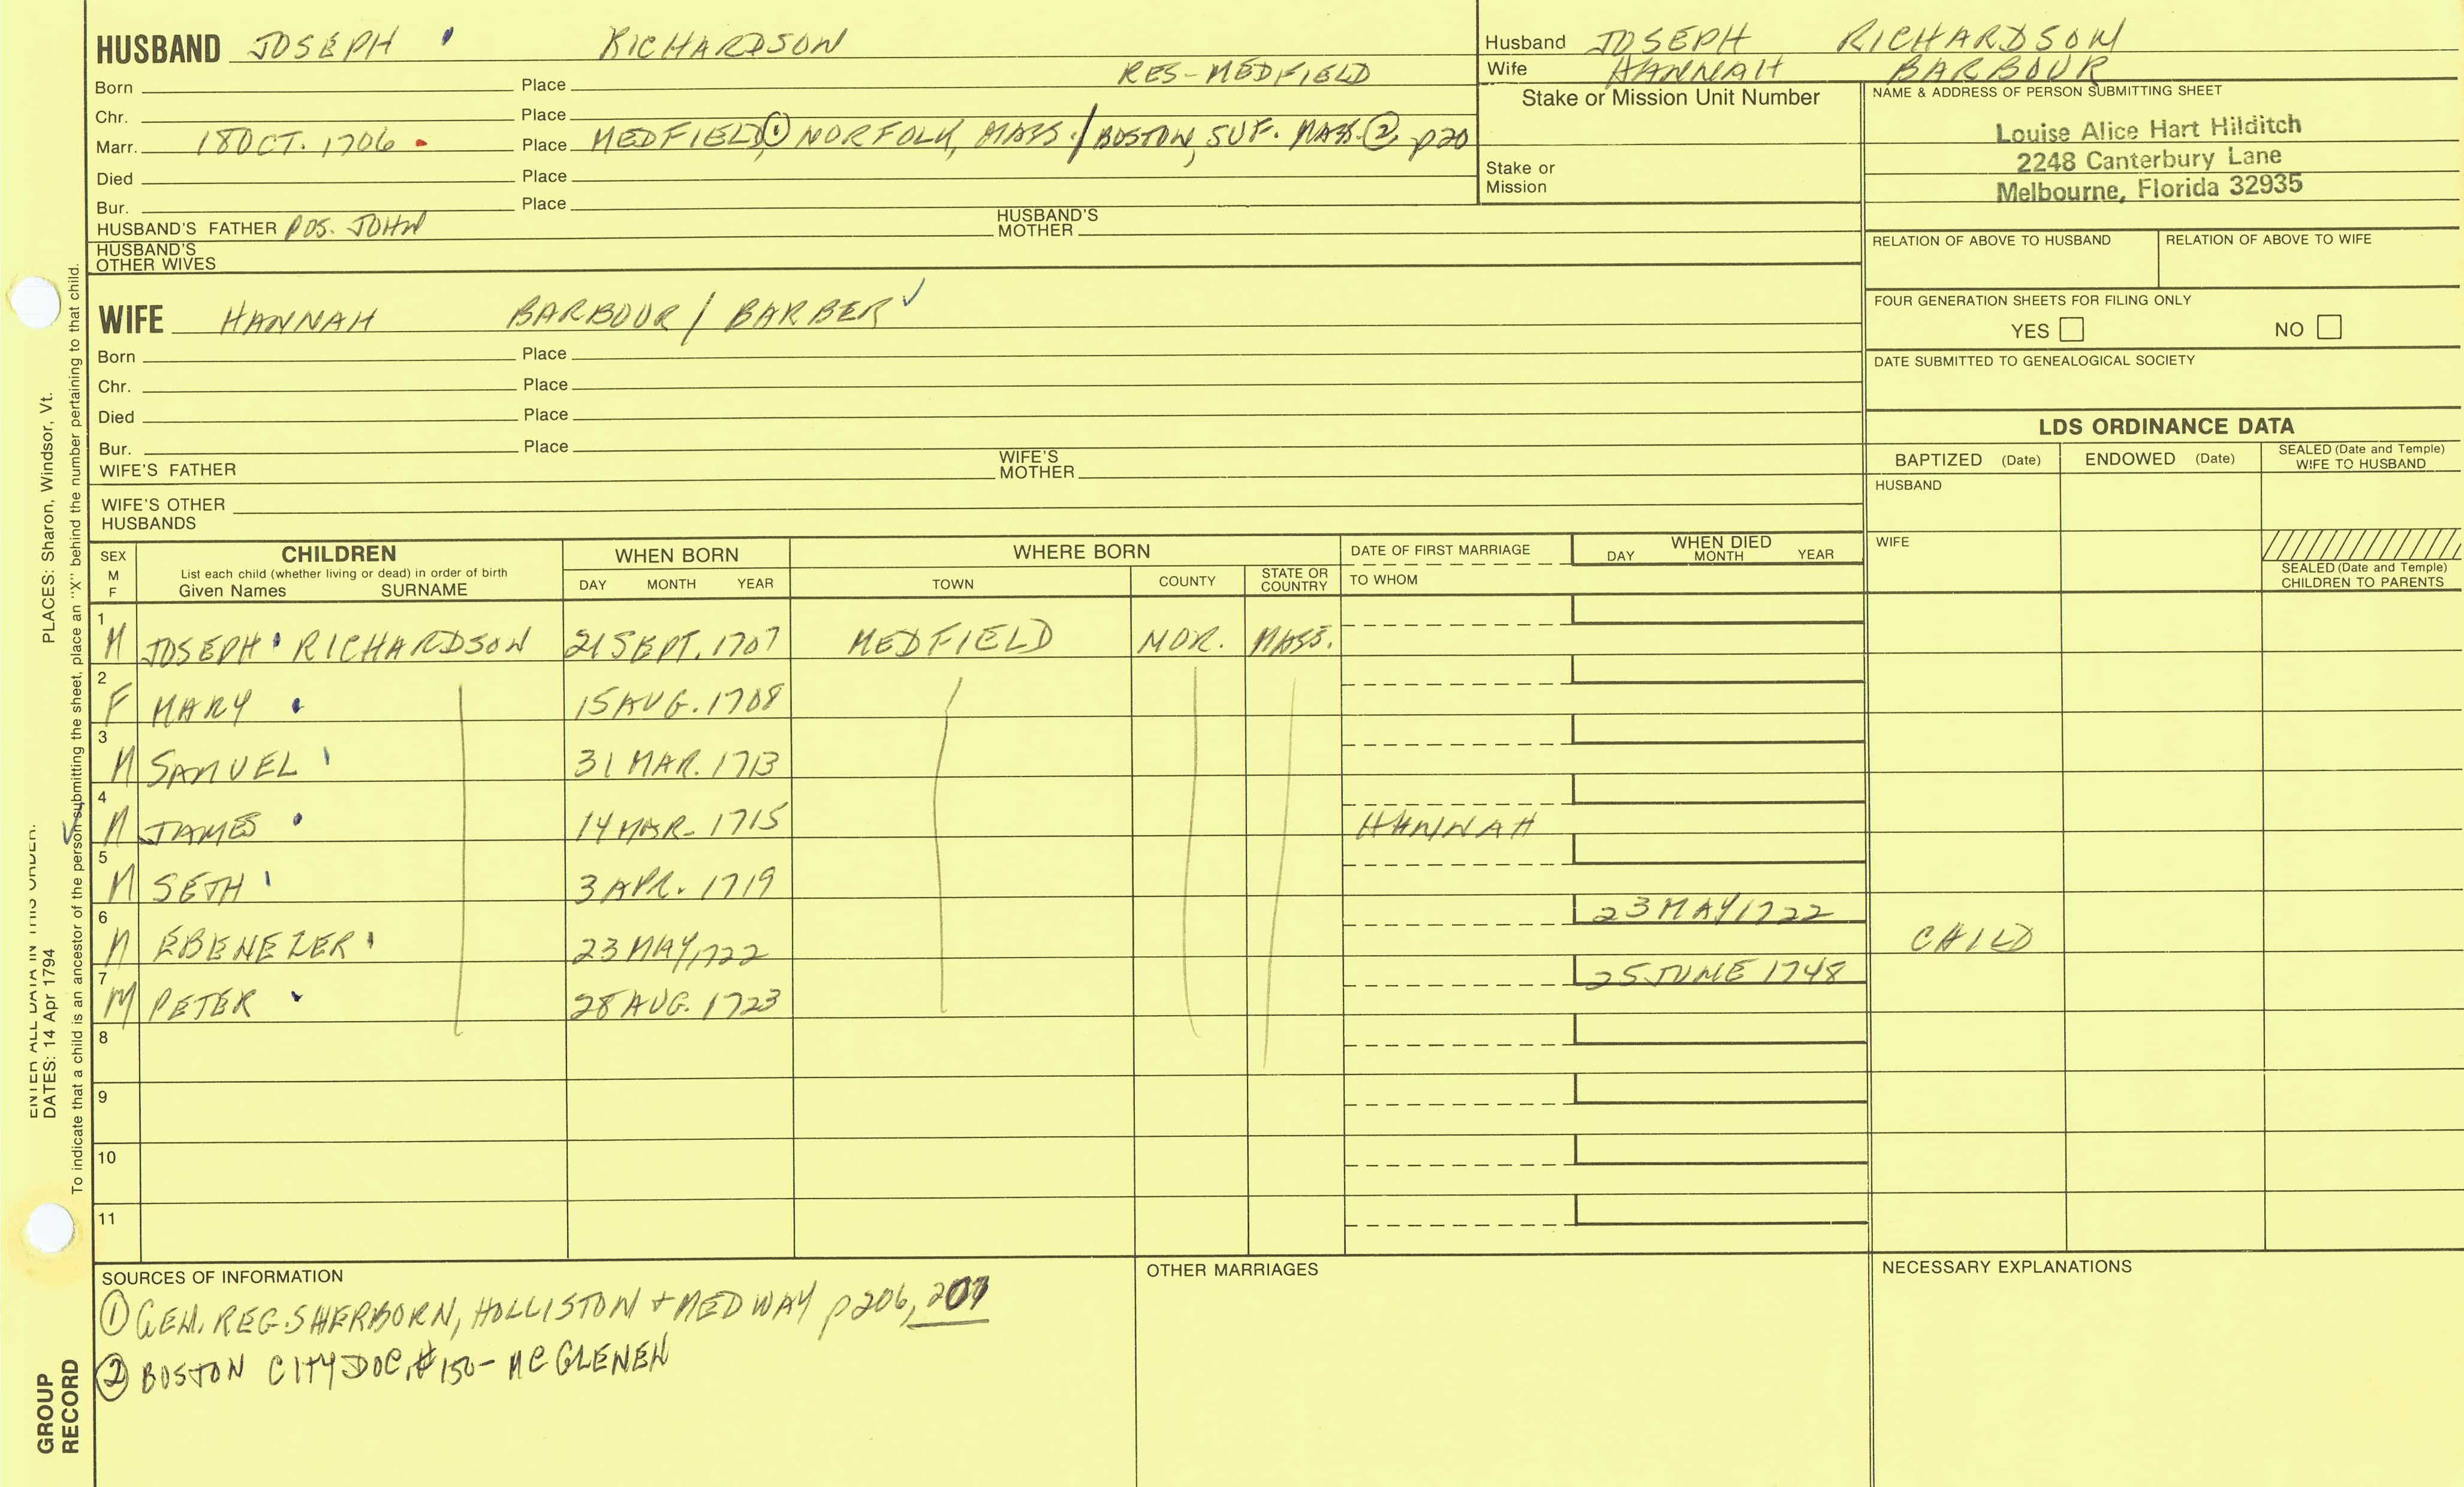 HUSBAND JOSEPH RICHARDSON
Born Place RES-MEDFIELD
Chr. Place
Marr. 18 OCT. 1706 Place MEDFIELD, ① NORFOLK, MASS. / BOSTON, SUF. MASS. ② p20
Died Place
Bur. Place
HUSBAND'S FATHER POS. JOHN HUSBAND'S MOTHER
HUSBAND'S OTHER WIVES
Husband JOSEPH RICHARDSON
Wife HANNAH BARBOUR
Stake or Mission Unit Number
Stake or Mission
NAME & ADDRESS OF PERSON SUBMITTING SHEET
Louise Alice Hart Hilditch
2248 Canterbury Lane
Melbourne, Florida 32935
RELATION OF ABOVE TO HUSBAND RELATION OF ABOVE TO WIFE
FOUR GENERATION SHEETS FOR FILING ONLY
YES NO
DATE SUBMITTED TO GENEALOGICAL SOCIETY
WIFE HANNAH BARBOUR / BARBER ✓
Born Place
Chr. Place
Died Place
Bur. Place
WIFE'S FATHER WIFE'S MOTHER
WIFE'S OTHER HUSBANDS
LDS ORDINANCE DATA
BAPTIZED (Date) ENDOWED (Date) SEALED (Date and Temple) WIFE TO HUSBAND
HUSBAND
WIFE
SEALED (Date and Temple) CHILDREN TO PARENTS
SEX M F
CHILDREN
List each child (whether living or dead) in order of birth
Given Names SURNAME
WHEN BORN
DAY MONTH YEAR
WHERE BORN
TOWN COUNTY STATE OR COUNTRY
DATE OF FIRST MARRIAGE
TO WHOM
WHEN DIED
DAY MONTH YEAR
1 M JOSEPH RICHARDSON 21 SEPT. 1707 MEDFIELD NOR. MASS.
2 F MARY 15 AUG. 1708
3 M SAMUEL 31 MAR. 1713
4 M JAMES 14 MAR. 1715 HANNAH
5 M SETH 3 APR. 1719
6 M EBENEZER 23 MAY, 1722 23 MAY 1722 CHILD
7 M PETER 28 AUG. 1723 25 JUNE 1748
8
9
10
11
SOURCES OF INFORMATION
① GEN. REG. SHERBORN, HOLLISTON + MEDWAY p206, 207
② BOSTON CITY DOC. #150- MCGLENEN
OTHER MARRIAGES
NECESSARY EXPLANATIONS
ENTER ALL DATA IN THIS ORDER:
DATES: 14 Apr 1794 PLACES: Sharon, Windsor, Vt.
To indicate that a child is an ancestor of the person submitting the sheet, place an "X" behind the number pertaining to that child.
GROUP
RECORD